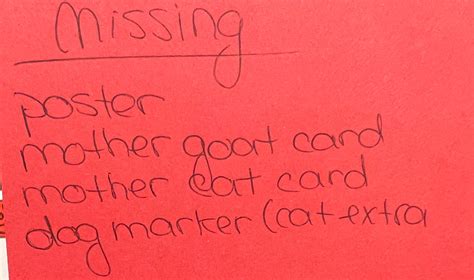 Missing
poster
mother goat card
mother cat card
dog marker (cat-extra